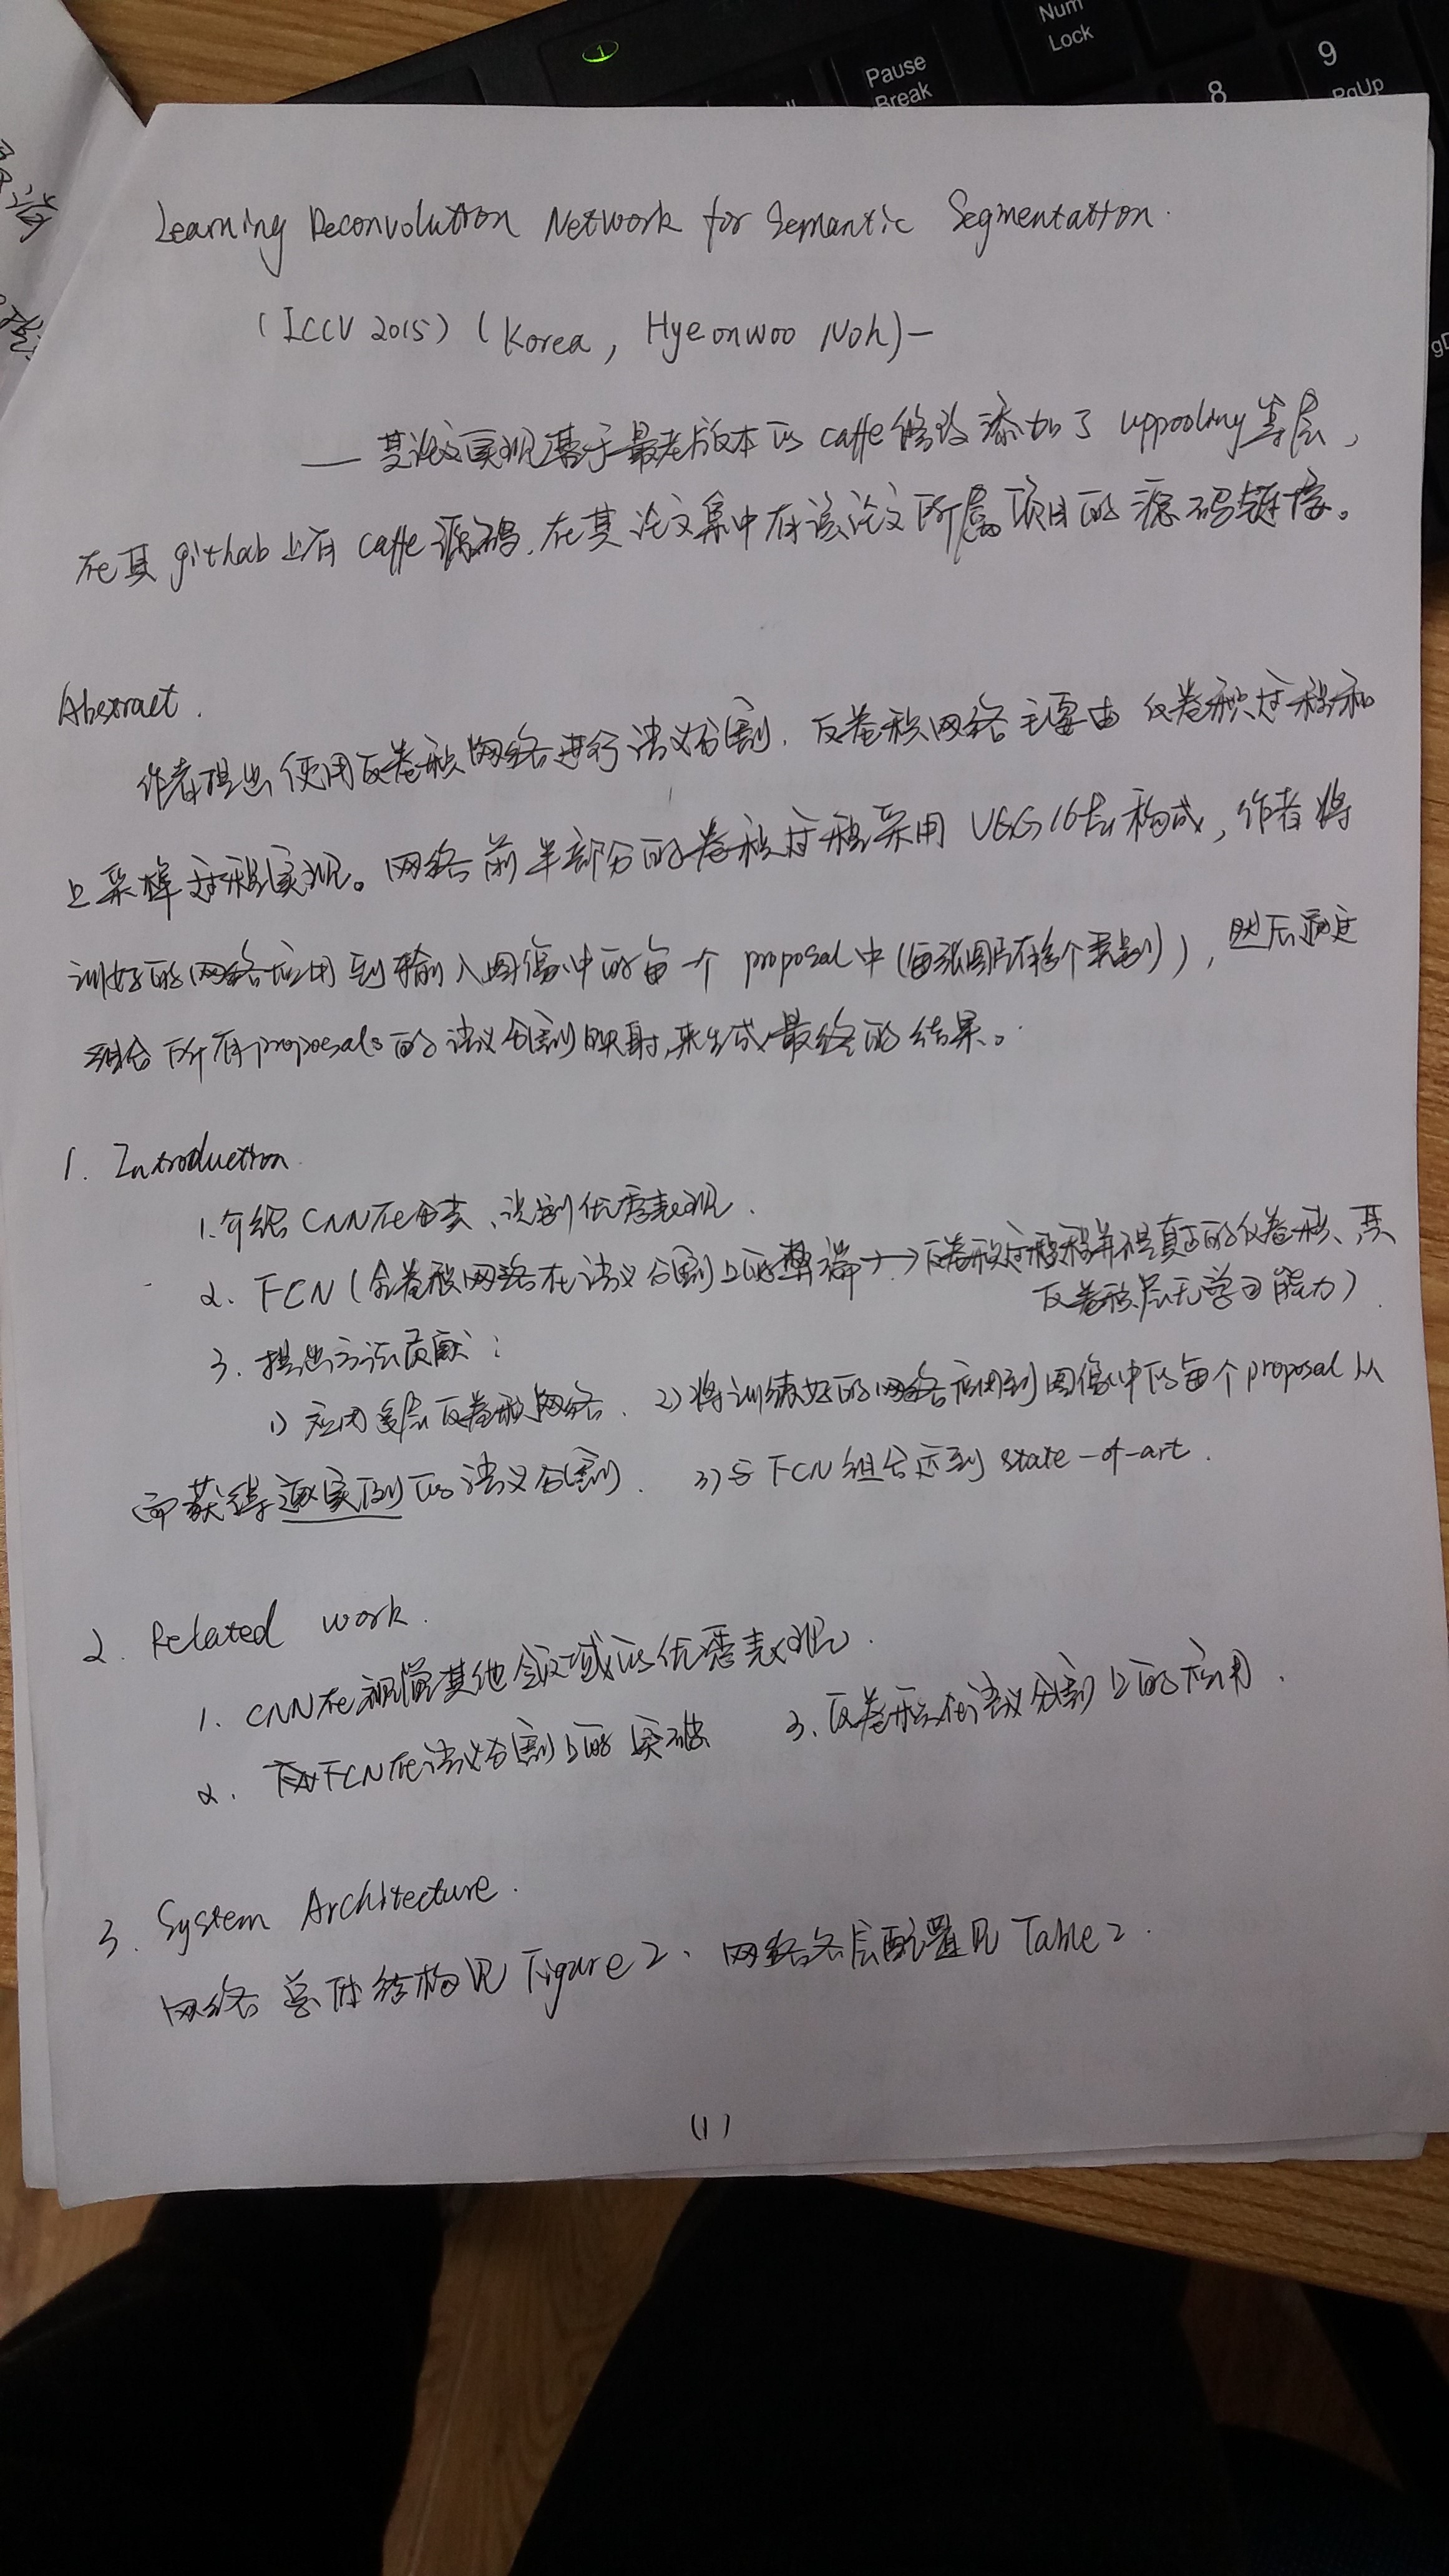 Num
Lock
Pause
Break
8
9
PgUp
Learning Deconvolution Network for Semantic Segmentation.
(ICCV 2015) (Korea, Hyeonwoo Noh)—
—— 其论文实现基于最老版本的 caffe 修改添加了 uppooling 等层,
在其 github 上有 caffe 源码,在其论文集中有该论文所属项目的源码链接。
Abstract.
作者提出使用反卷积网络进行语义分割. 反卷积网络主要由 反卷积过程和
上采样过程实现。网络前半部分的卷积过程采用 VGG16去构成, 作者将
训好的网络应用到输入图像中的每一个 proposal 中 (每张图片有多个类别), 然后通过
组合所有 proposals 的语义分割映射,来生成最终的结果。
1. Introduction.
1. 介绍 CNN在分类、识别优秀表现.
2. FCN (全卷积网络在语义分割上的弊端 → 反卷积过程并不是真正的反卷积、其
反卷积层无学习能力).
3. 提出方法贡献:
1) 应用多层反卷积网络. 2) 将训练好的网络应用到图像中的每个 proposal 从
而获得逐实例的语义分割. 3) 与 FCN 组合达到 state-of-art.
2. Related work.
1. CNN在视觉其他领域的优秀表现.
2. FCN在语义分割上的突破 3. 反卷积在语义分割上的应用.
3. System Architecture.
网络总体结构见 Figure 2. 网络各层配置见 Table 2.
(1)